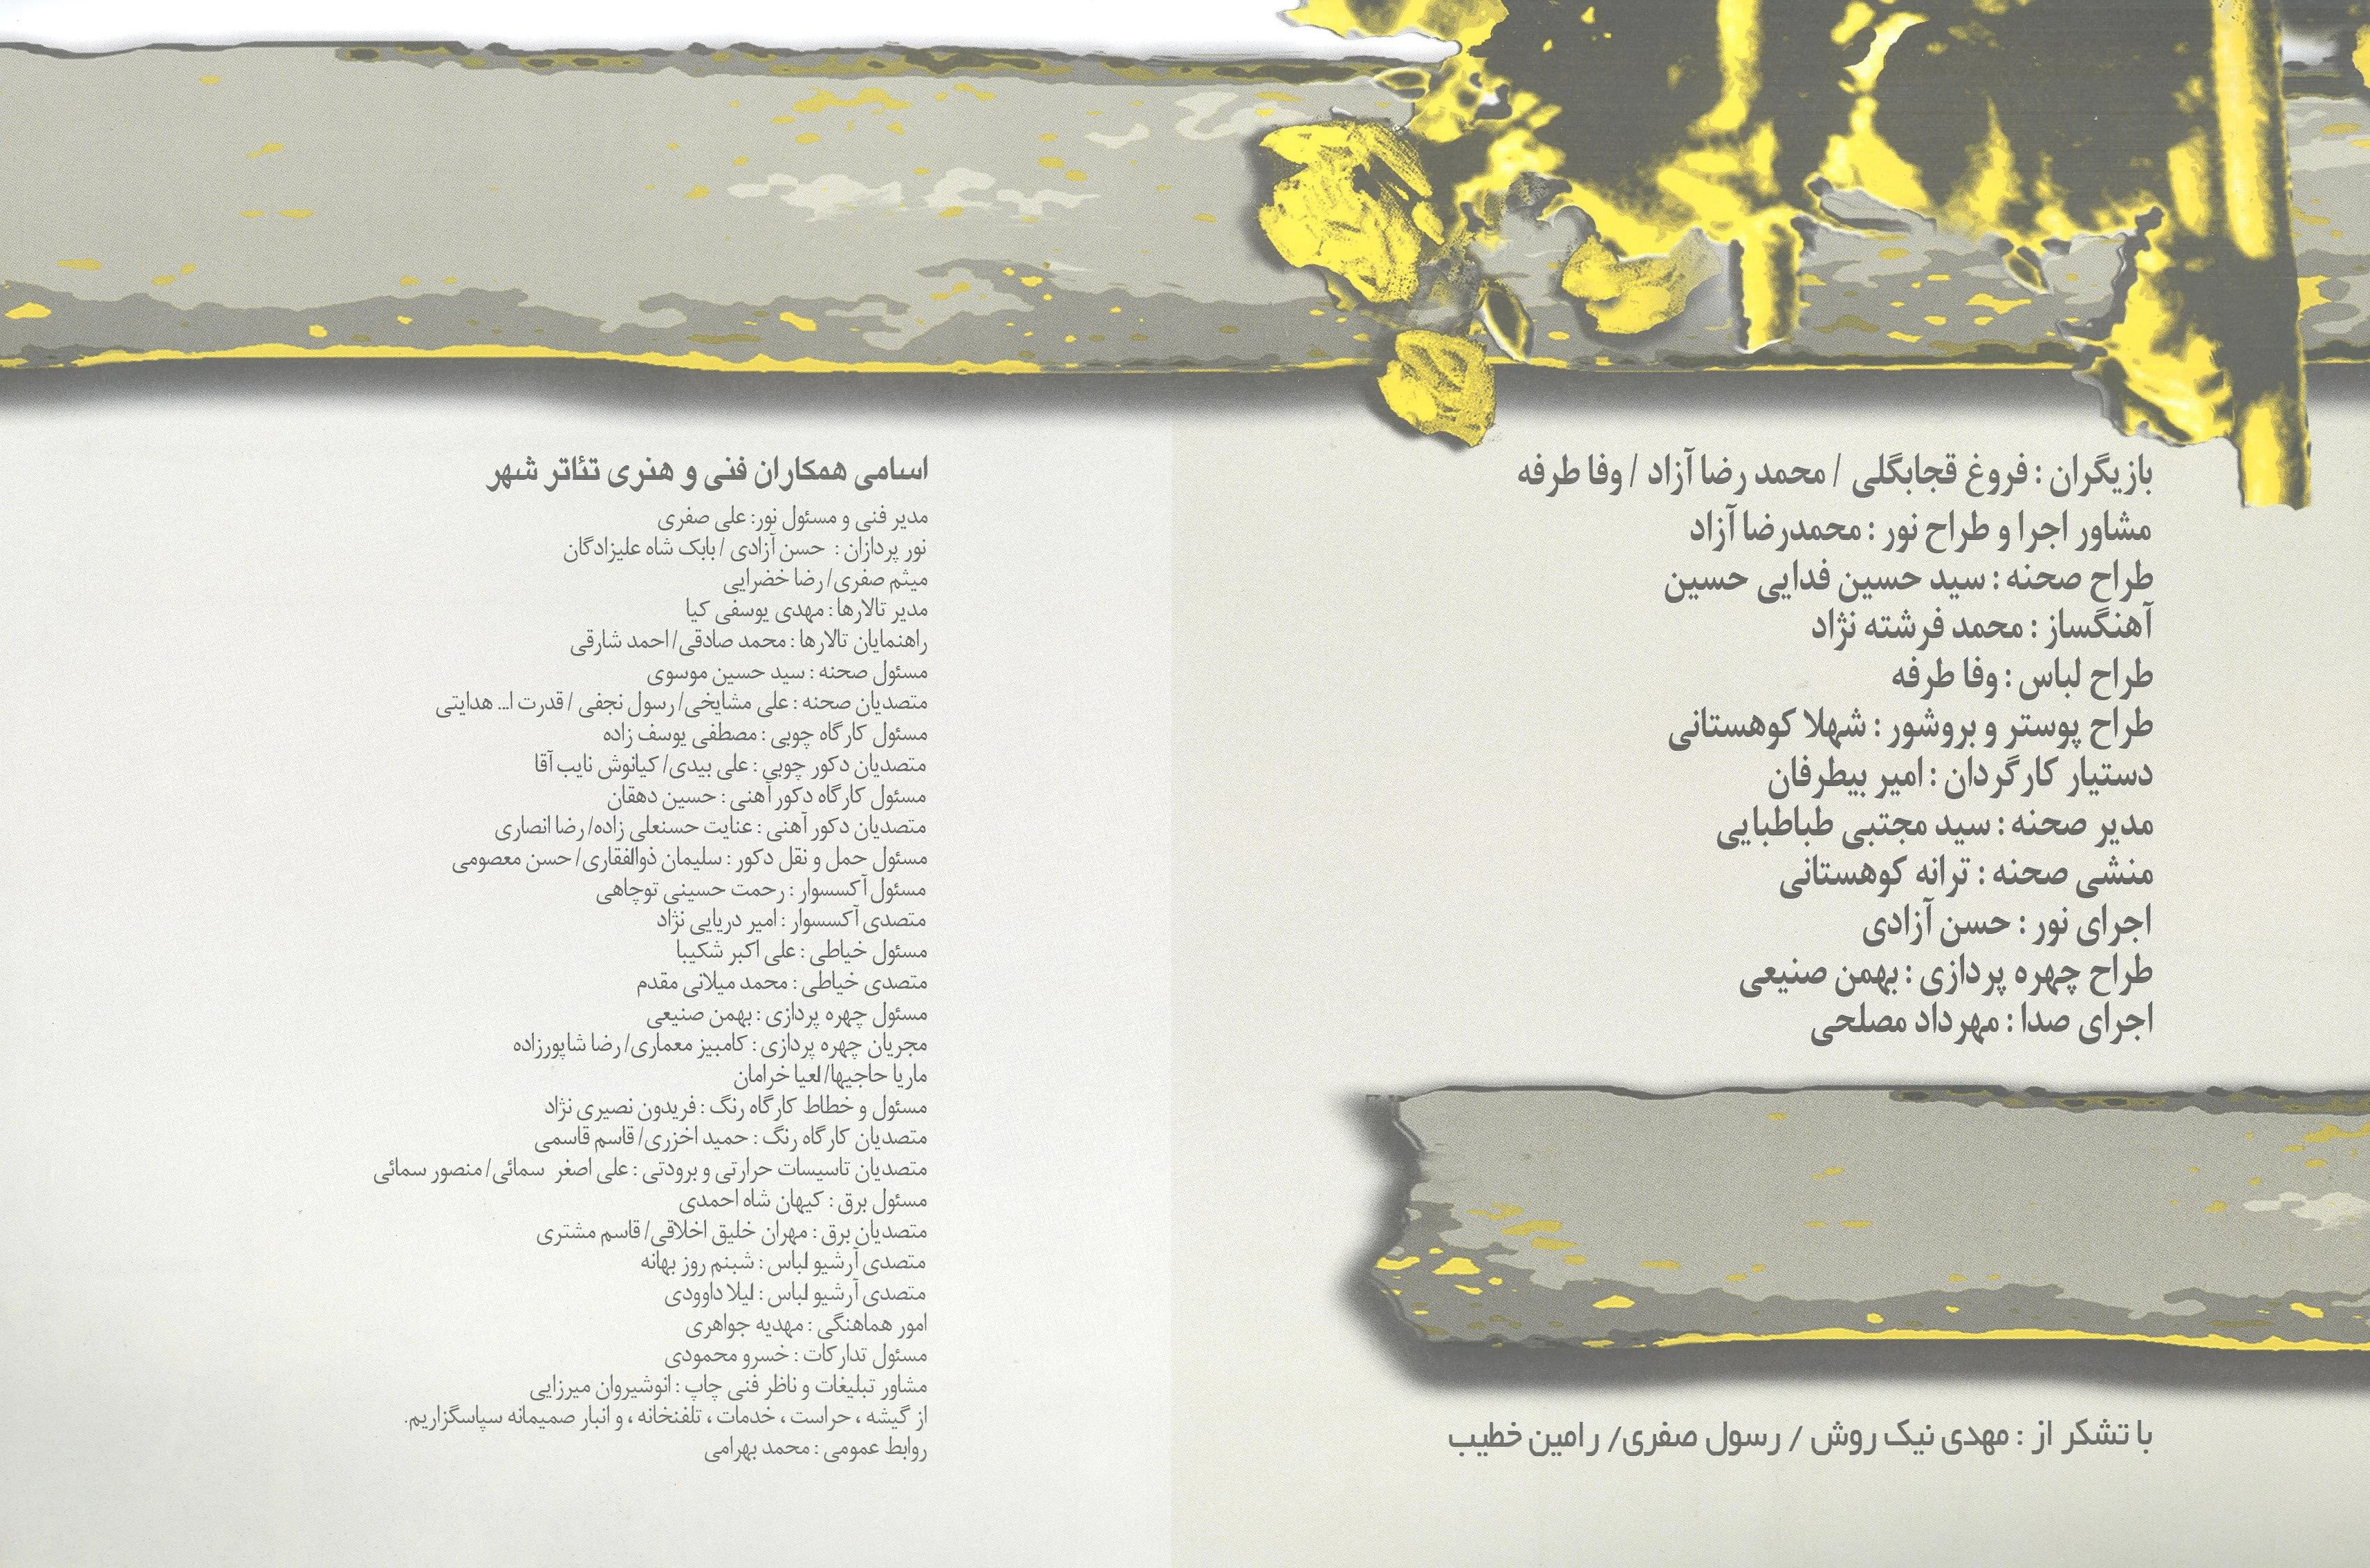 بازیگران : فروغ قجابگلی / محمد رضا آزاد / وفا طرفه
مشاور اجرا و طراح نور : محمدرضا آزاد
طراح صحنه : سید حسین فدایی حسین
آهنگساز : محمد فرشته نژاد
طراح لباس : وفا طرفه
طراح پوستر و بروشور : شهلا کوهستانی
دستیار کارگردان : امیر بیطرفان
مدیر صحنه : سید مجتبی طباطبایی
منشی صحنه : ترانه کوهستانی
اجرای نور : حسن آزادی
طراح چهره پردازی : بهمن صنیعی
اجرای صدا : مهرداد مصلحی
با تشکر از : مهدی نیک روش / رسول صفری/ رامین خطیب
اسامی همکاران فنی و هنری تئاتر شهر
مدیر فنی و مسئول نور: علی صفری
نور پردازان : حسن آزادی / بابک شاه علیزادگان
میثم صفری/ رضا خضرایی
مدیر تالارها : مهدی یوسفی کیا
راهنمایان تالارها : محمد صادقی/ احمد شارقی
مسئول صحنه : سید حسین موسوی
متصدیان صحنه : علی مشایخی/ رسول نجفی / قدرت ا... هدایتی
مسئول کارگاه چوبی : مصطفی یوسف زاده
متصدیان دکور چوبی : علی بیدی/ کیانوش نایب آقا
مسئول کارگاه دکور آهنی : حسین دهقان
متصدیان دکور آهنی : عنایت حسنعلی زاده/ رضا انصاری
مسئول حمل و نقل دکور : سلیمان ذوالفقاری/ حسن معصومی
مسئول آکسسوار : رحمت حسینی توچاهی
متصدی آکسسوار : امیر دریایی نژاد
مسئول خیاطی : علی اکبر شکیبا
متصدی خیاطی : محمد میلانی مقدم
مسئول چهره پردازی : بهمن صنیعی
مجریان چهره پردازی : کامبیز معماری/ رضا شاپورزاده
ماریا حاجیها/ لعیا خرامان
مسئول و خطاط کارگاه رنگ : فریدون نصیری نژاد
متصدیان کارگاه رنگ : حمید اخزری/ قاسم قاسمی
متصدیان تاسیسات حرارتی و برودتی : علی اصغر سمائی/ منصور سمائی
مسئول برق : کیهان شاه احمدی
متصدیان برق : مهران خلیق اخلاقی/ قاسم مشتری
متصدی آرشیو لباس : شبنم روز بهانه
متصدی آرشیو لباس : لیلا داوودی
امور هماهنگی : مهدیه جواهری
مسئول تدارکات : خسرو محمودی
مشاور تبلیغات و ناظر فنی چاپ : انوشیروان میرزایی
از گیشه ، حراست ، خدمات ، تلفنخانه ، و انبار صمیمانه سپاسگزاریم.
روابط عمومی : محمد بهرامی